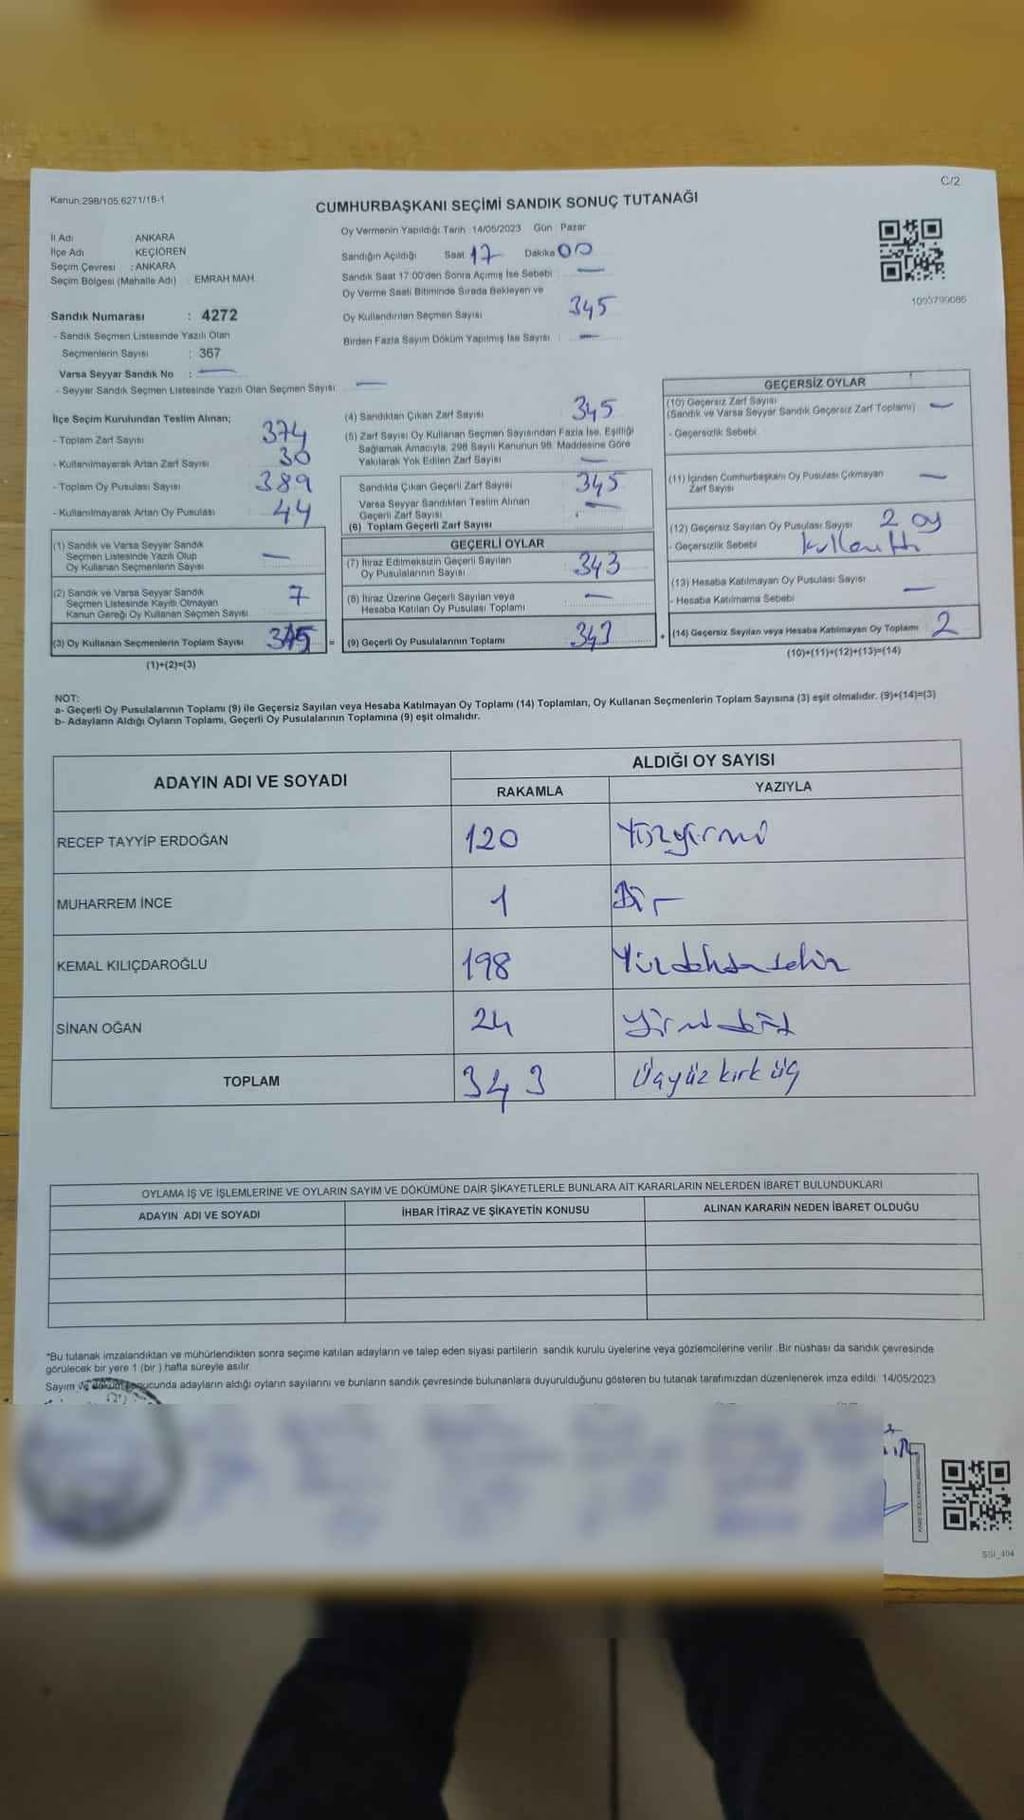 C/2
Kanun:298/105,6271/18-1
CUMHURBAŞKANI SEÇİMİ SANDIK SONUÇ TUTANAĞI
İl Adı ANKARA
İlçe Adı KEÇİÖREN
Seçim Çevresi : ANKARA
Seçim Bölgesi (Mahalle Adı) EMRAH MAH.
Sandık Numarası : 4272
- Sandık Seçmen Listesinde Yazılı Olan
Seçmenlerin Sayısı : 367
Varsa Seyyar Sandık No : —
- Seyyar Sandık Seçmen Listesinde Yazılı Olan Seçmen Sayısı —
Oy Vermenin Yapıldığı Tarih :14/05/2023 Gün : Pazar
Sandığın Açıldığı Saat 17 Dakika 00
Sandık Saat 17:00'den Sonra Açılmış İse Sebebi —
Oy Verme Saati Bitiminde Sırada Bekleyen ve
Oy Kullandırılan Seçmen Sayısı 345
Birden Fazla Sayım Döküm Yapılmış İse Sayısı : —
1093799086
İlçe Seçim Kurulundan Teslim Alınan;
- Toplam Zarf Sayısı 374
- Kullanılmayarak Artan Zarf Sayısı 30
- Toplam Oy Pusulası Sayısı 389
- Kullanılmayarak Artan Oy Pusulası 44
(1) Sandık ve Varsa Seyyar Sandık
Seçmen Listesinde Yazılı Olup
Oy Kullanan Seçmenlerin Sayısı —
(2) Sandık ve Varsa Seyyar Sandık
Seçmen Listesinde Kayıtlı Olmayan
Kanun Gereği Oy Kullanan Seçmen Sayısı 7
(3) Oy Kullanan Seçmenlerin Toplam Sayısı 345 =
(1)+(2)=(3)
(4) Sandıktan Çıkan Zarf Sayısı 345
(5) Zarf Sayısı Oy Kullanan Seçmen Sayısından Fazla İse, Eşitliği
Sağlamak Amacıyla, 298 Sayılı Kanunun 98. Maddesine Göre
Yakılarak Yok Edilen Zarf Sayısı —
Sandıkta Çıkan Geçerli Zarf Sayısı 345
Varsa Seyyar Sandıktan Teslim Alınan
Geçerli Zarf Sayısı —
(6) Toplam Geçerli Zarf Sayısı
GEÇERLİ OYLAR
(7) İtiraz Edilmeksizin Geçerli Sayılan
Oy Pusulalarının Sayısı 343
(8) İtiraz Üzerine Geçerli Sayılan veya
Hesaba Katılan Oy Pusulası Toplamı —
(9) Geçerli Oy Pusulalarının Toplamı 343 +
GEÇERSİZ OYLAR
(10) Geçersiz Zarf Sayısı
(Sandık ve Varsa Seyyar Sandık Geçersiz Zarf Toplamı) —
- Geçersizlik Sebebi
(11) İçinden Cumhurbaşkanı Oy Pusulası Çıkmayan
Zarf Sayısı —
(12) Geçersiz Sayılan Oy Pusulası Sayısı 2 oy
- Geçersizlik Sebebi
(13) Hesaba Katılmayan Oy Pusulası Sayısı
- Hesaba Katılmama Sebebi —
(14) Geçersiz Sayılan veya Hesaba Katılmayan Oy Toplamı 2
(10)+(11)+(12)+(13)=(14)
NOT:
a- Geçerli Oy Pusulalarının Toplamı (9) ile Geçersiz Sayılan veya Hesaba Katılmayan Oy Toplamı (14) Toplamları, Oy Kullanan Seçmenlerin Toplam Sayısına (3) eşit olmalıdır. (9)+(14)=(3)
b- Adayların Aldığı Oyların Toplamı, Geçerli Oy Pusulalarının Toplamına (9) eşit olmalıdır.
ADAYIN ADI VE SOYADI ALDIĞI OY SAYISI
RAKAMLA YAZIYLA
RECEP TAYYİP ERDOĞAN 120 Yüzyirmi
MUHARREM İNCE 1 Bir
KEMAL KILIÇDAROĞLU 198 Yüzdoksansekiz
SİNAN OĞAN 24 Yirmidört
TOPLAM 343 Üçyüz kırk üç
OYLAMA İŞ VE İŞLEMLERİNE VE OYLARIN SAYIM VE DÖKÜMÜNE DAİR ŞİKAYETLERLE BUNLARA AİT KARARLARIN NELERDEN İBARET BULUNDUKLARI
ADAYIN ADI VE SOYADI İHBAR İTİRAZ VE ŞİKAYETİN KONUSU ALINAN KARARIN NEDEN İBARET OLDUĞU
*Bu tutanak imzalandıktan ve mühürlendikten sonra seçime katılan adayların ve talep eden siyasi partilerin sandık kurulu üyelerine veya gözlemcilerine verilir. Bir nüshası da sandık çevresinde
görülecek bir yere 1 (bir ) hafta süreyle asılır.
Sayım ve sonucunda adayların aldığı oyların sayılarını ve bunların sandık çevresinde bulunanlara duyurulduğunu gösteren bu tutanak tarafımızdan düzenlenerek imza edildi. 14/05/2023